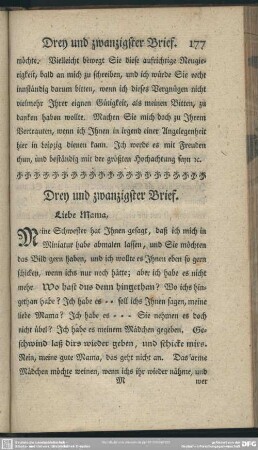 Drey und zwanzigster Brief. 177
möchte. Vielleicht bewegt Sie diese aufrichtige Neugie-
rigkeit, bald an mich zu schreiben, und ich würde Sie recht
inständig darum bitten, wenn ich dieses Vergnügen nicht
vielmehr Ihrer eignen Gütigkeit, als meinen Bitten, zu
danken haben wollte. Machen Sie mich doch zu Ihrem
Vertrauten, wenn ich Ihnen in irgend einer Angelegenheit
hier in Leipzig dienen kann. Ich werde es mit Freuden
thun, und beständig mit der größten Hochachtung seyn ꝛc.
Drey und zwanzigster Brief.
Liebe Mama,
Meine Schwester hat Ihnen gesagt, daß ich mich in
Miniatur habe abmalen lassen, und Sie möchten
das Bild gern haben, und ich wollte es Ihnen eben so gern
schicken, wenn ichs nur noch hätte; aber ich habe es nicht
mehr. Wo hast dus denn hingethan? Wo ichs hin-
gethan habe? Ich habe es - - soll ichs Ihnen sagen, meine
liebe Mama? Ich habe es - - - Sie nehmen es doch
nicht übel? Ich habe es meinem Mädchen gegeben. Ge-
schwind laß dirs wieder geben, und schicke mirs.
Nein, meine gute Mama, das geht nicht an. Das arme
Mädchen möchte weinen, wenn ichs ihr wieder nähme, und
M wer